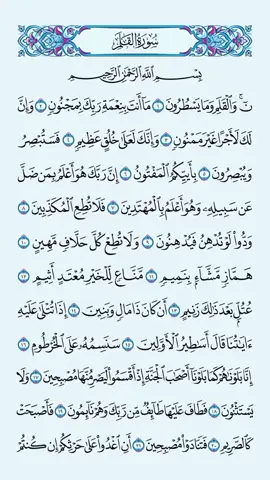 سُورَةُ القَلَمِ
بِسْمِ اللَّهِ الرَّحْمَٰنِ الرَّحِيمِ
نٓ ۚ وَالْقَلَمِ وَمَا يَسْطُرُونَ ١ مَا أَنتَ بِنِعْمَةِ رَبِّكَ بِمَجْنُونٍ ٢ وَإِنَّ
لَكَ لَأَجْرًا غَيْرَ مَمْنُونٍ ٣ وَإِنَّكَ لَعَلَىٰ خُلُقٍ عَظِيمٍ ٤ فَسَتُبْصِرُ
وَيُبْصِرُونَ ٥ بِأَييِّكُمُ الْمَفْتُونُ ٦ إِنَّ رَبَّكَ هُوَ أَعْلَمُ بِمَن ضَلَّ
عَن سَبِيلِهِ وَهُوَ أَعْلَمُ بِالْمُهْتَدِينَ ٧ فَلَا تُطِعِ الْمُكَذِّبِينَ ٨
وَدُّوا لَوْ تُدْهِنُ فَيُدْهِنُونَ ٩ وَلَا تُطِعْ كُلَّ حَلَّافٍ مَّهِينٍ ١٠
هَمَّازٍ مَّشَّاءٍ بِنَمِيمٍ ١١ مَّنَّاعٍ لِّلْخَيْرِ مُعْتَدٍ أَثِيمٍ ١٢
عُتُلٍّ بَعْدَ ذَٰلِكَ زَنِيمٍ ١٣ أَن كَانَ ذَا مَالٍ وَبَنِينَ ١٤ إِذَا تُتْلَىٰ عَلَيْهِ
ءَايَٰتُنَا قَالَ أَسَٰطِيرُ الْأَوَّلِينَ ١٥ سَنَسِمُهُ عَلَى الْخُرْطُومِ ١٦
إِنَّا بَلَوْنَٰهُمْ كَمَا بَلَوْنَا أَصْحَٰبَ الْجَنَّةِ إِذْ أَقْسَمُوا لَيَصْرِمُنَّهَا مُصْبِحِينَ ١٧ وَلَا
يَسْتَثْنُونَ ١٨ فَطَافَ عَلَيْهَا طَائِفٌ مِّن رَّبِّكَ وَهُمْ نَائِمُونَ ١٩ فَأَصْبَحَتْ
كَالصَّرِيمِ ٢٠ فَتَنَادَوْا مُصْبِحِينَ ٢١ أَنِ اغْدُوا عَلَىٰ حَرْثِكُمْ إِن كُنتُمْ